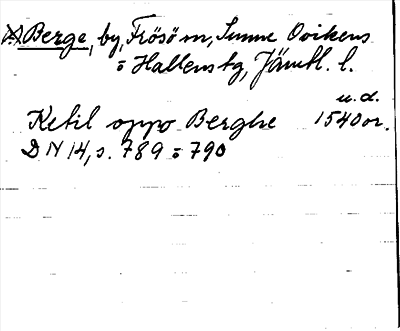 Berge, by, Frösö m, Sunne Ovikens
o Hallens tg, Jämtl. l.
u. d.
Ketil oppo Berghe 1540 or.
D N 14, s. 789 o 790